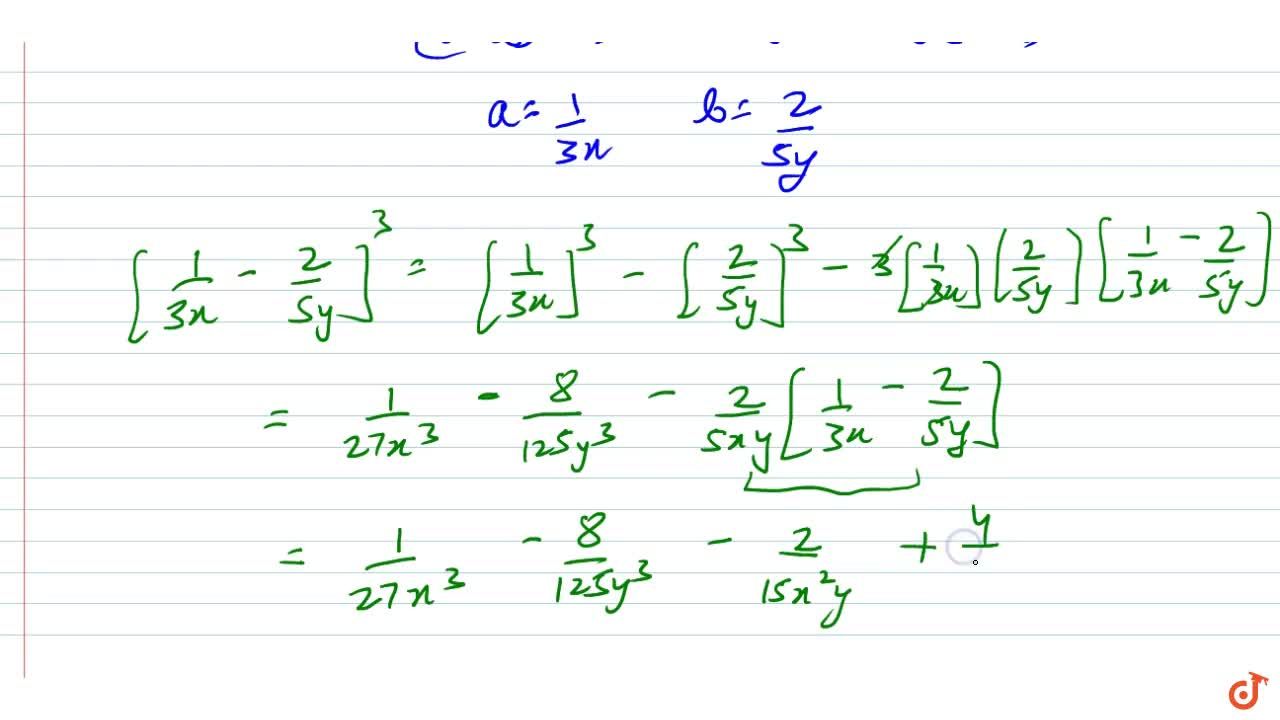 a = 1/3x b = 2/5y
[1/3x - 2/5y]^3 = [1/3x]^3 - [2/5y]^3 - 3[1/3x][2/5y][1/3x - 2/5y]
= 1/27x^3 - 8/125y^3 - 2/5xy[1/3x - 2/5y]
= 1/27x^3 - 8/125y^3 - 2/15x^2y + 4/